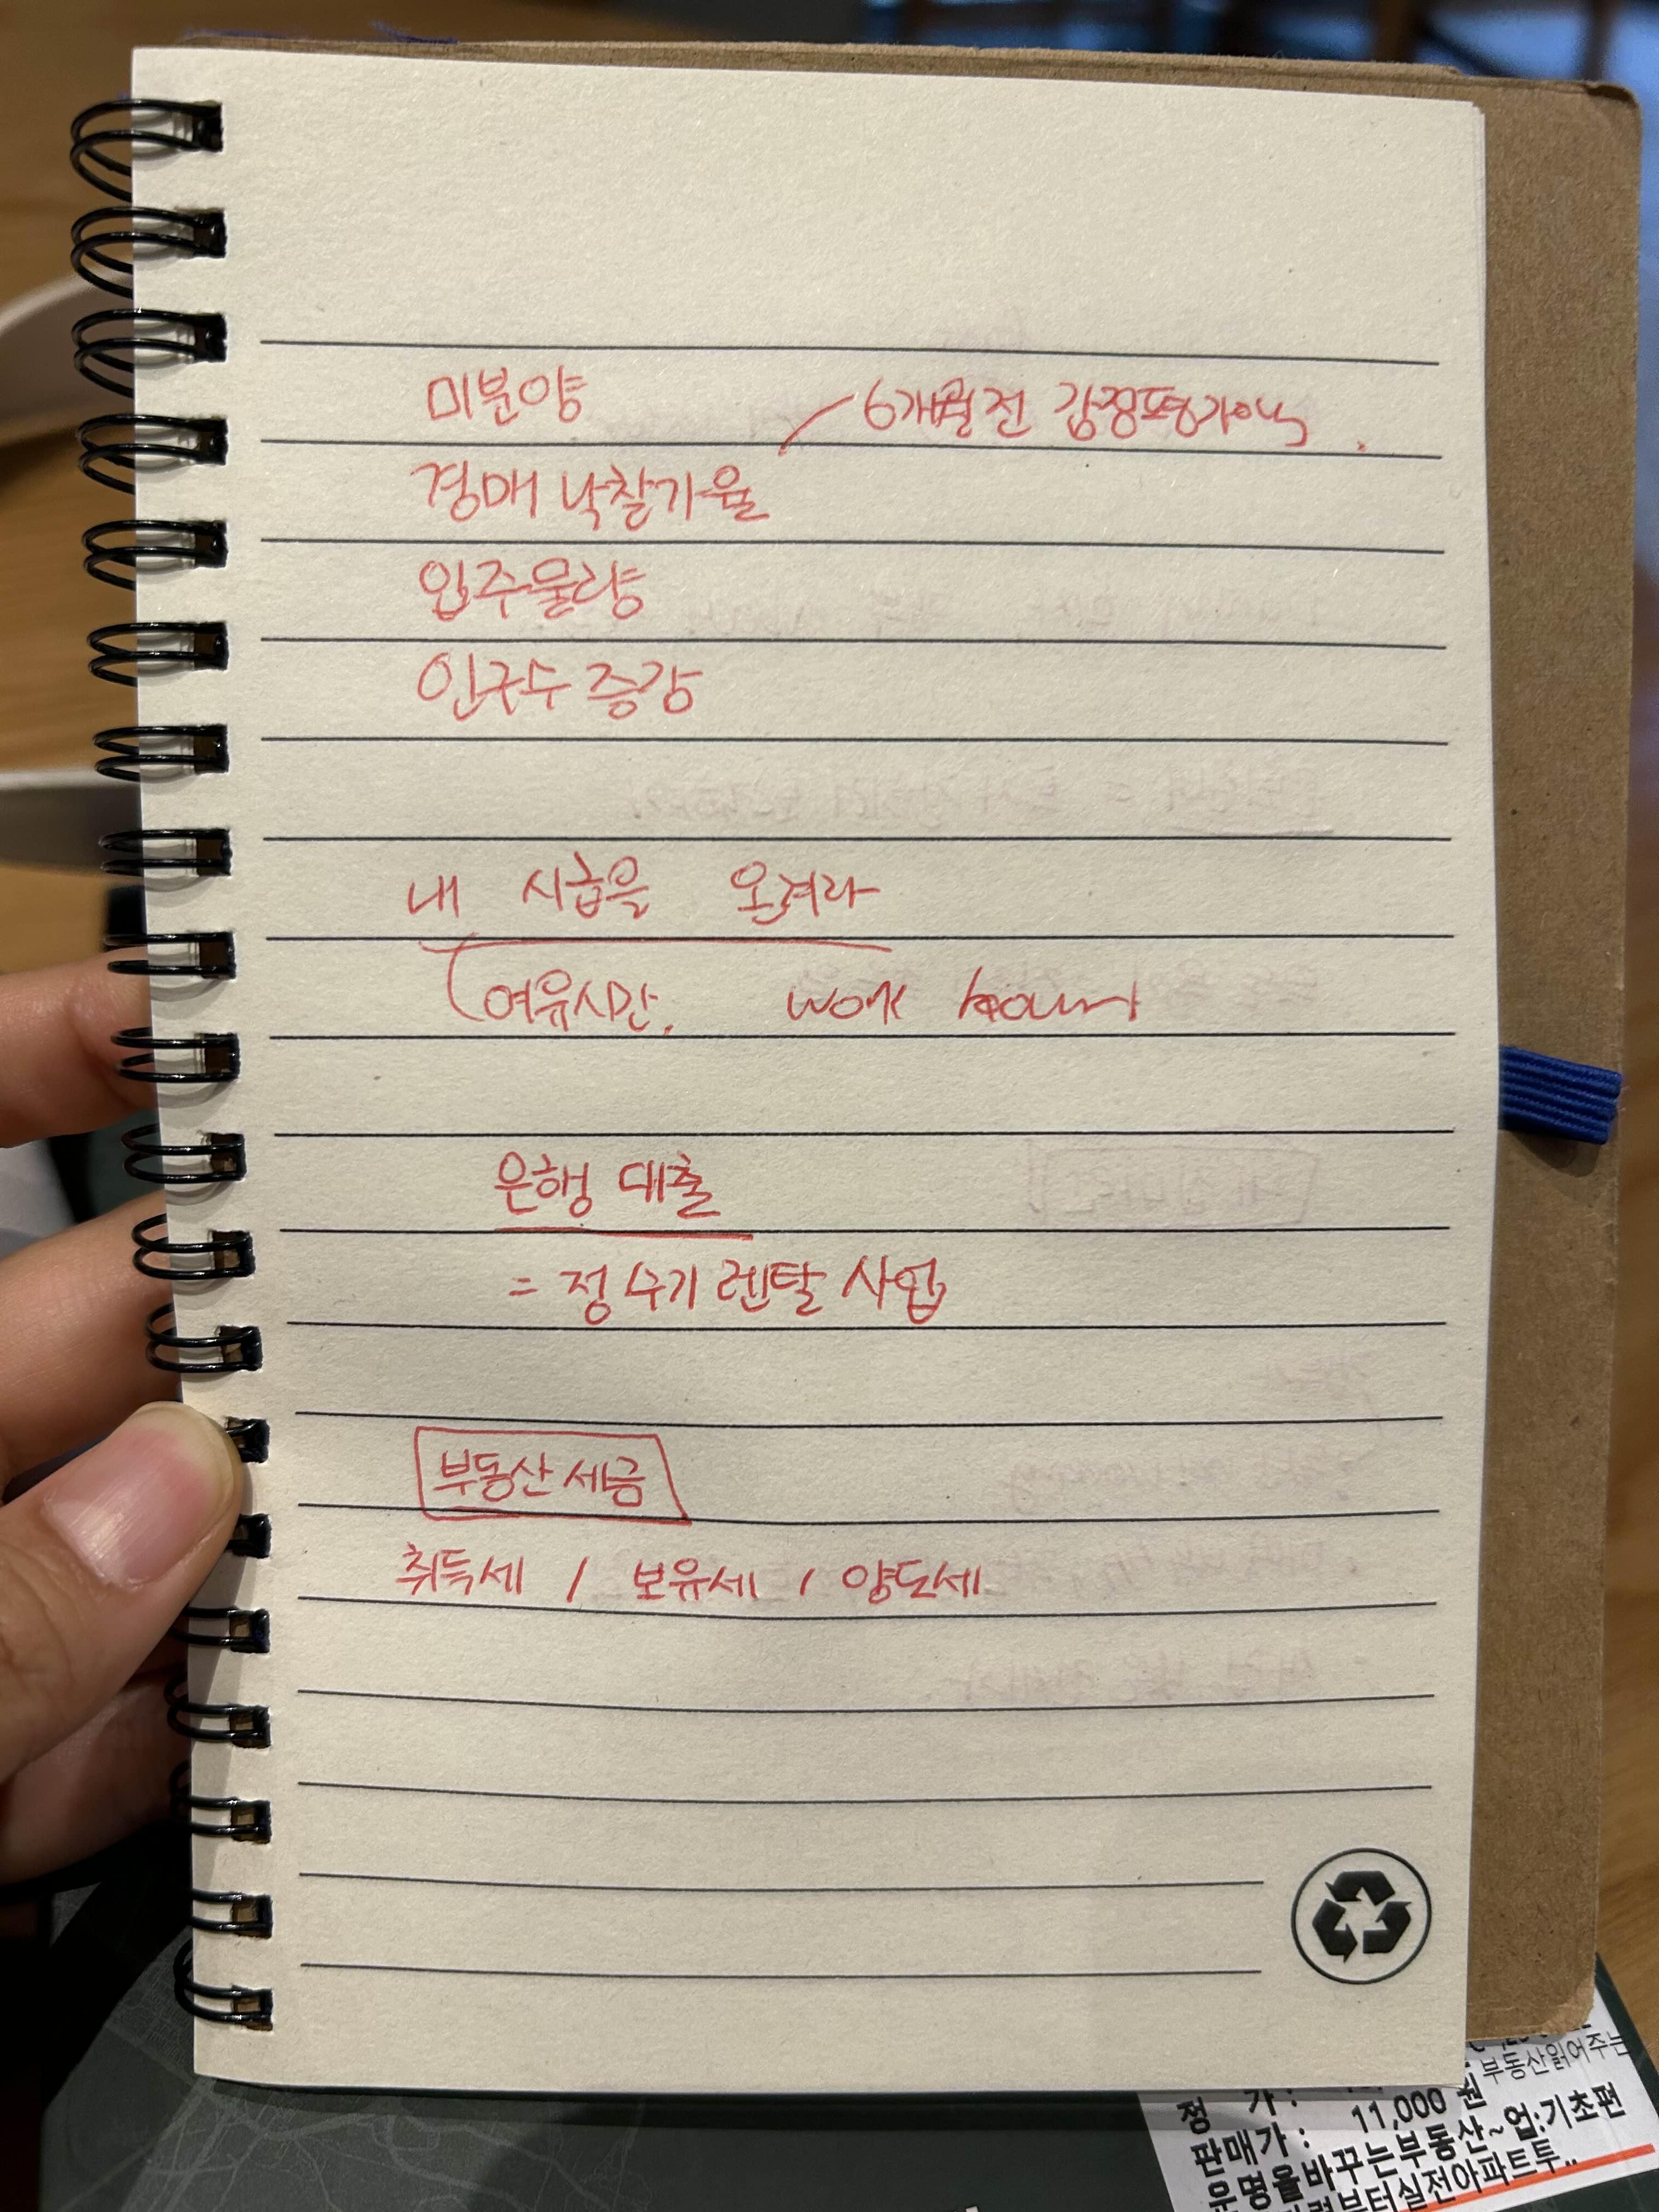 미분양
6개월전 감정평가액.
경매 낙찰가율
입주물량
인구수 증감
내 시급을 올려라
여유시간. work hour
은행 대출
= 정수기 렌탈 사업
부동산 세금
취득세 / 보유세 / 양도세
부동산읽어주는
정 가 :
판매가 : 11,000 원
운명을바꾸는부동산~업:기초편
부터실전아파트투..